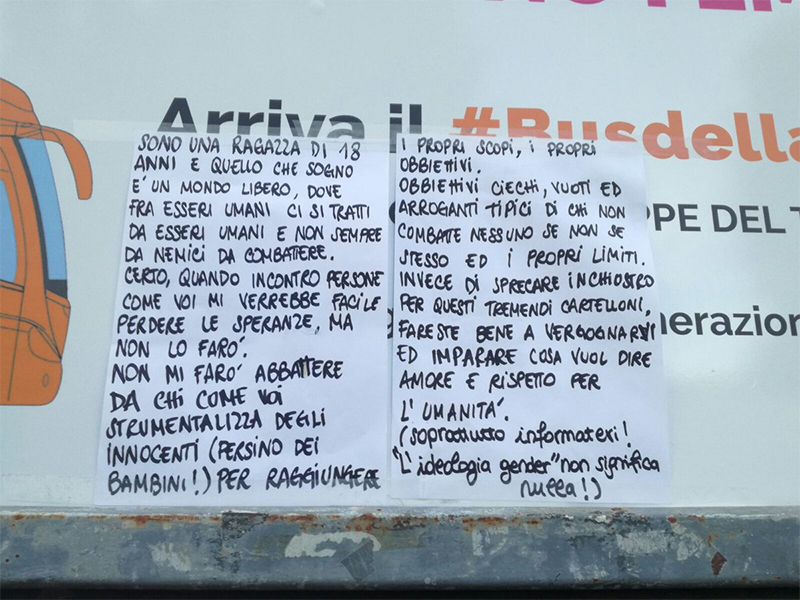 Arriva il #Busdella
PPE DEL T
nerazion
SONO UNA RAGAZZA DI 18
ANNI E QUELLO CHE SOGNO
E' UN MONDO LIBERO, DOVE
FRA ESSERI UMANI CI SI TRATTI
DA ESSERI UMANI E NON SEMPRE
DA NEMICI DA COMBATTERE.
CERTO, QUANDO INCONTRO PERSONE
COME VOI MI VERREBBE FACILE
PERDERE LE SPERANZE, MA
NON LO FARO'.
NON MI FARO' ABBATTERE
DA CHI COME VOI
STRUMENTALIZZA DEGLI
INNOCENTI (PERSINO DEI
BAMBINI!) PER RAGGIUNGERE
I PROPRI SCOPI, I PROPRI
OBBIETTIVI.
OBBIETTIVI CIECHI, VUOTI ED
ARROGANTI TIPICI DI CHI NON
COMBATE NESSUNO SE NON SE
STESSO ED I PROPRI LIMITI.
INVECE DI SPRECARE INCHIOSTRO
PER QUESTI TREMENDI CARTELLONI,
FARESTE BENE A VERGOGNARVI
ED IMPARARE COSA VUOL DIRE
AMORE E RISPETTO PER
L'UMANITA'.
(soprattutto informatevi!
"L'ideologia gender" non significa
nulla!)